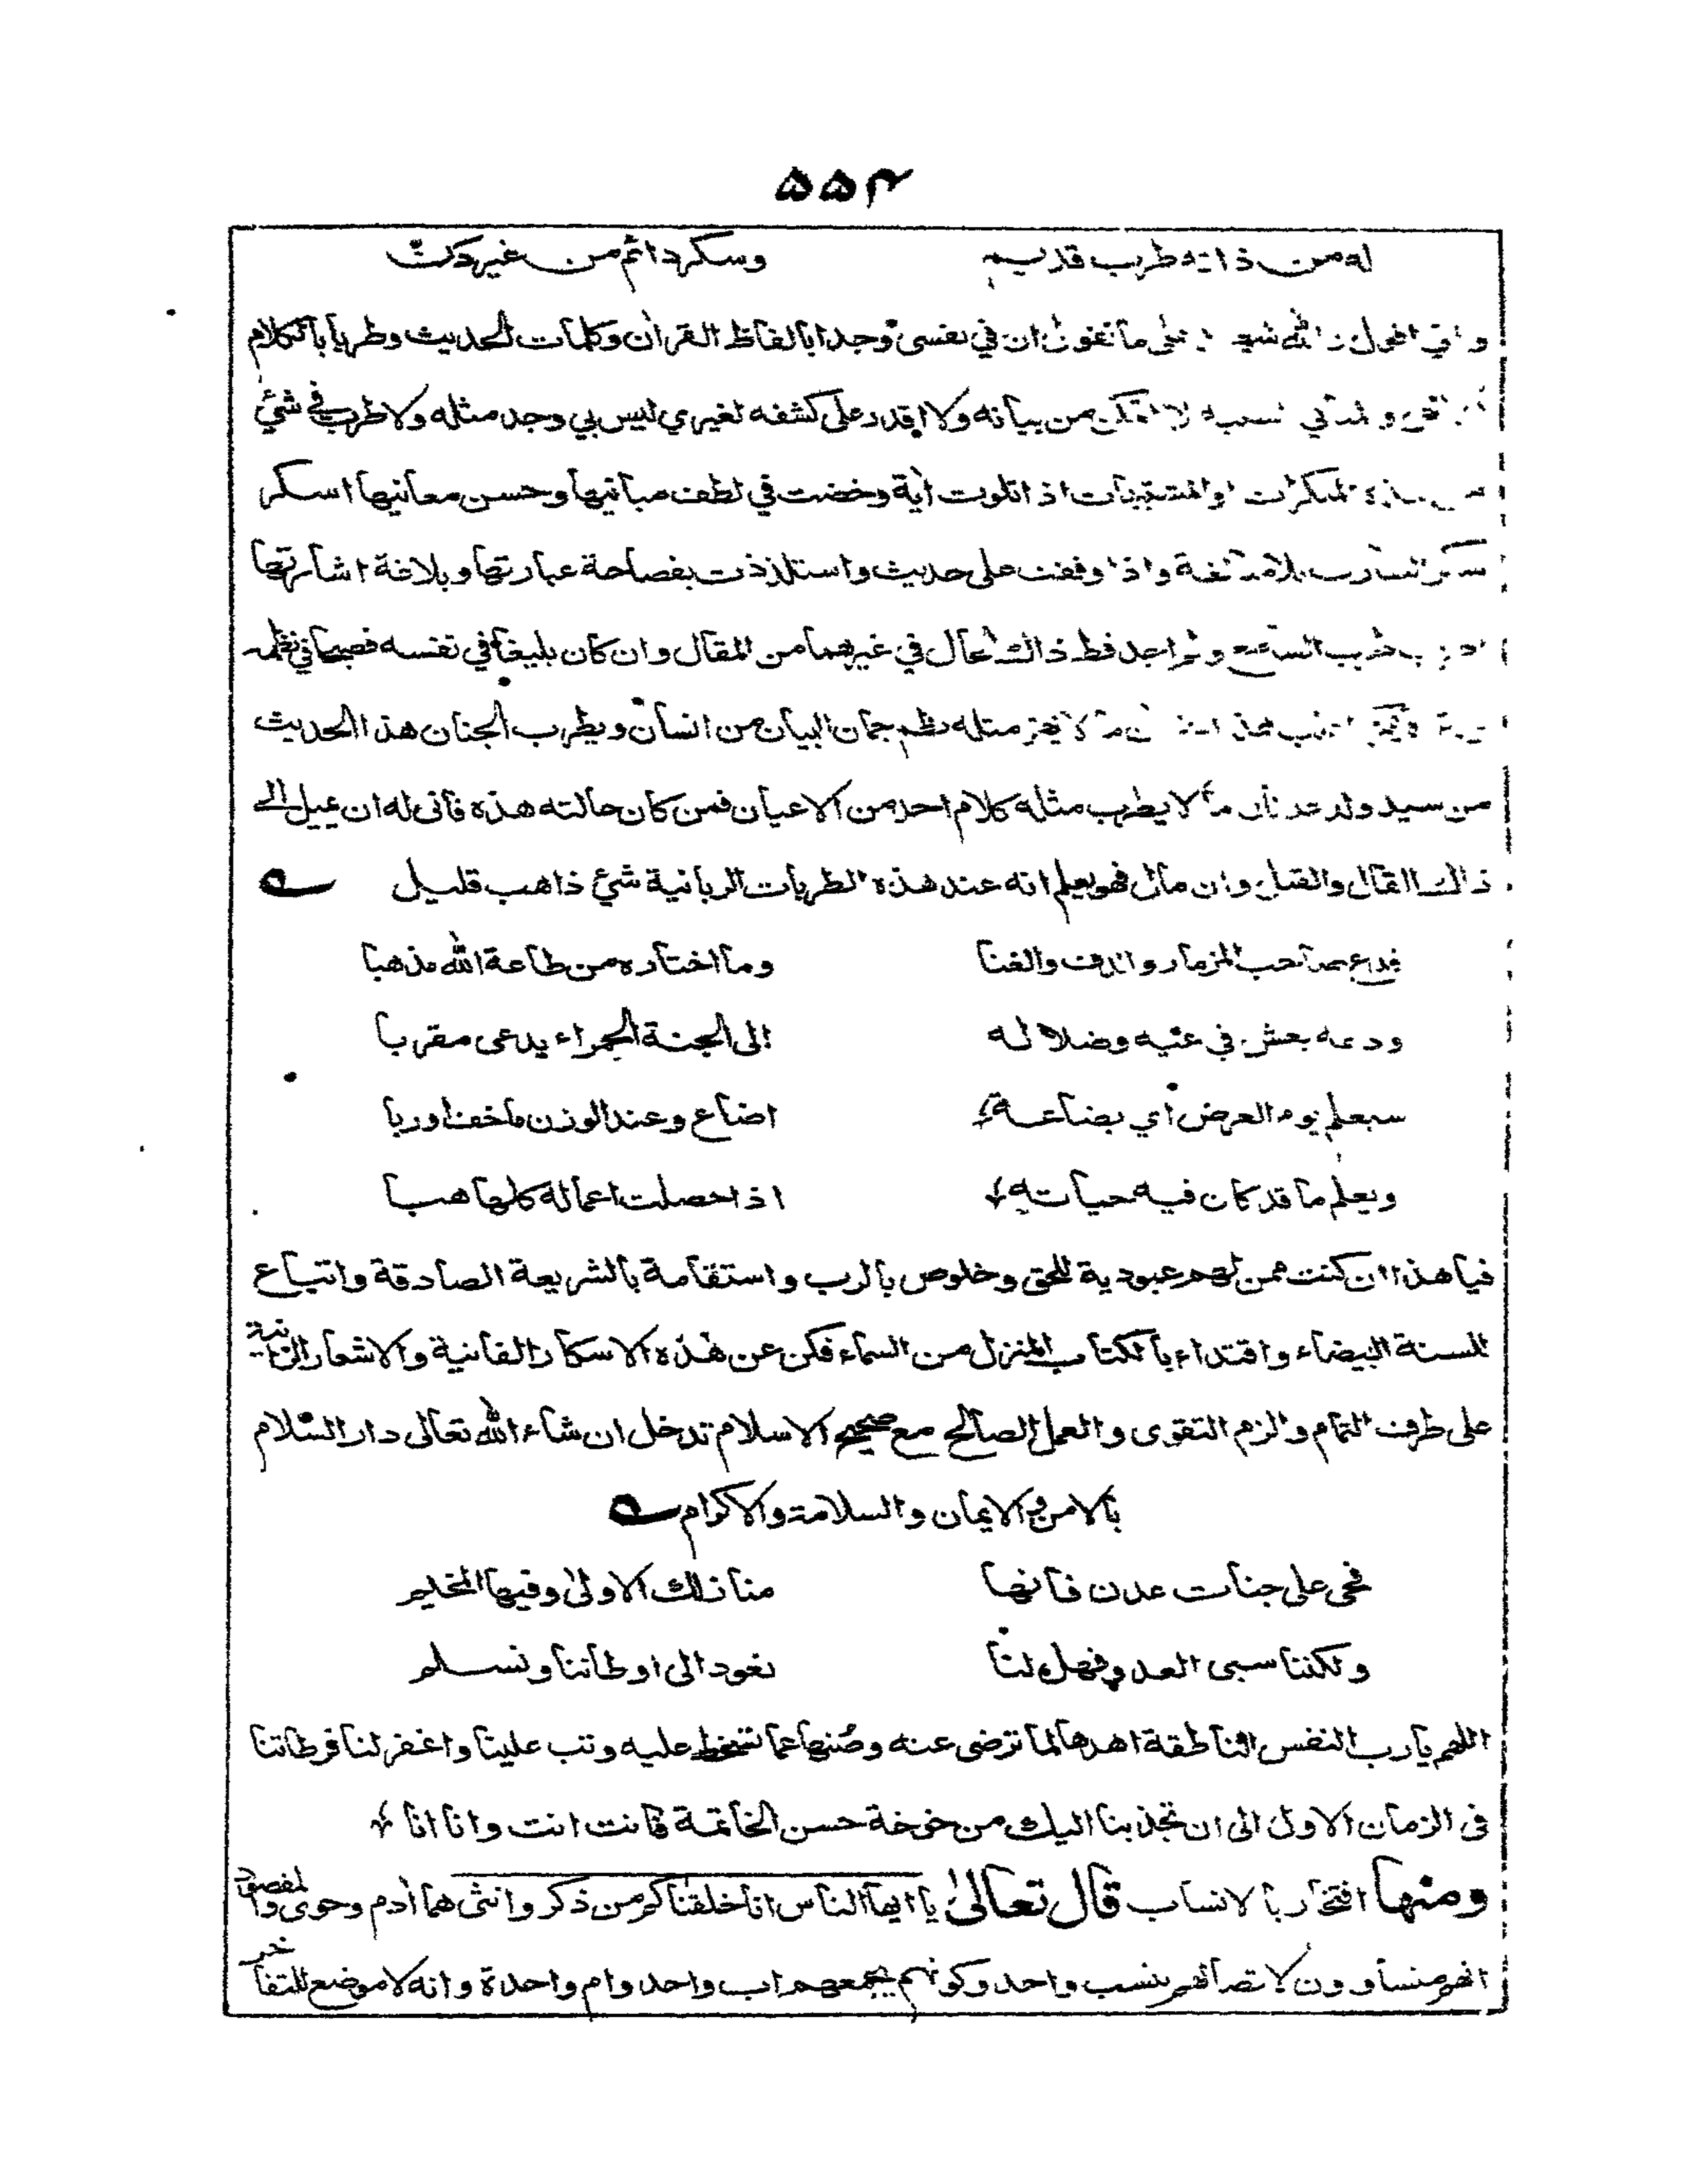 ۵۵۴
له من ذاته طرب قديم وسكر دائم من غير دن
ان في نفسي وجدا بالفاظ القرآن وكلمات الحديث وطربا بالكلام
من بيانه ولا اقدر على كشفه لغيري ليس بي وجد مثله ولا طرب في شئ
المنكرات اذا تلوت آية وخضت في لطف مبانيها وحسن معانيها اسكر
واذا وقفت على حديث واستلذذت بفصاحة عبارتها وبلاغة اشارتها
طرب السامع ولم اجد قط ذالك الحال في غيرهما من المقال وان كان بليغا في نفسه فصيحا في نظمه
مثله نظم جمان البيان من انسان ويطرب الجنان هذا الحديث
من سيد ولد عدنان ما لا يطرب مثله كلام احد من الاعيان فمن كان حالته هذه فانى له ان يميل الى
ذالك القال والقيل وان مال فهو يعلم انه عند هذه الطربات الربانية شئ ذاهب قليل
فدع صاحب المزمار والدف والغنا وما اختاره من طاعة الله مذهبا
ودعه يعش في غيه وضلاله الى الجنة الحمراء يدعى مقربا
سيعلم يوم العرض اي بضاعة اضاع وعند الوزن ما خف اوربا
ويعلم ما قد كان فيه حياته اذا حصلت اعماله كلها هبا
فيا هذا ان كنت ممن لهم عبودية للحق وخلوص بالرب واستقامة بالشريعة الصادقة واتباع
للسنة البيضاء واقتداء بالكتاب المنزل من السماء فكن عن هذه الاسكار الفانية والاشعار الزانية
على طرف التمام والزم التقوى والعمل الصالح مع صحيح الاسلام تدخل ان شاء الله تعالى دار السلام
بالامن والايمان والسلامة والاكرام
فحى على جنات عدن فانها منازلك الاولى وفيها المخيم
ولكننا سبى العدو فهل لنا نعود الى اوطاننا ونسلم
اللهم يا رب النفس الناطقة اهدها لما ترضى عنه وصنها عما تسخط عليه وتب علينا واغفر لنا فرطاتنا
فى الزمان الاول الى ان تجذبنا اليك من خوخة حسن الخاتمة فانت انت وانا انا
ومنها افتخار بالانساب قال تعالى يا ايها الناس انا خلقناكم من ذكر وانثى هما آدم وحوى والمقصود
انهم متساوون لاتصالهم بنسب واحد وكونهم يجمعهم اب واحد وام واحدة وانه لا موضع للتفاخر